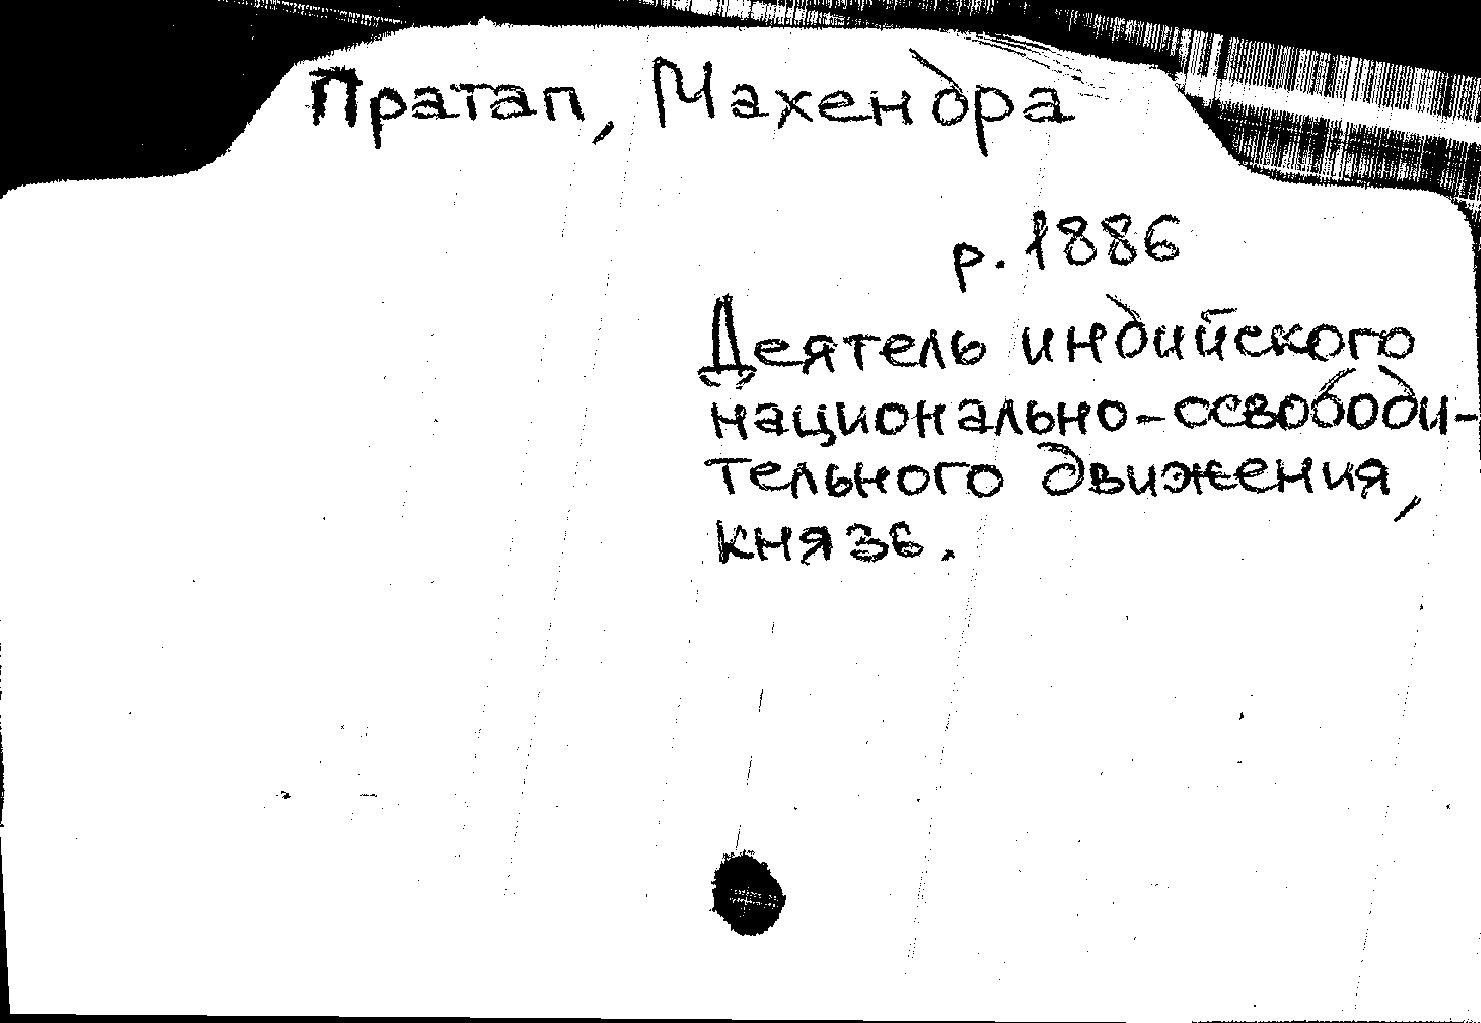 Пратап, Махендра
р. 1886
Деятель индийского
национально-освободи-
тельного движения,
князь.